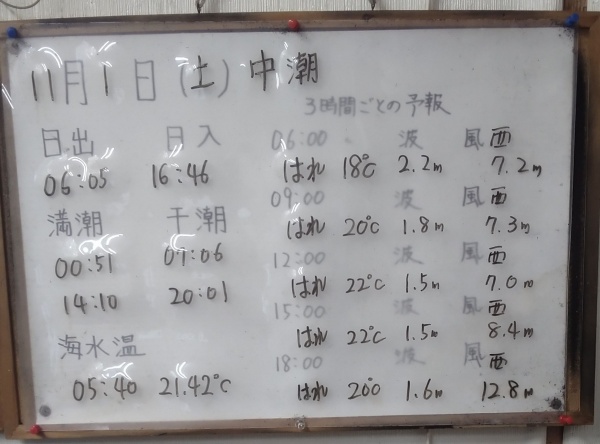 11月1日(土)中潮
3時間ごとの予報
日出 日入
06:05 16:46
満潮 干潮
00:51 07:06
14:10 20:01
海水温
05:40 21.42℃
06:00 波 風 西
はれ 18℃ 2.2m 7.2m
09:00 波 風 西
はれ 20℃ 1.8m 7.3m
12:00 波 風 西
はれ 22℃ 1.5m 7.0m
15:00 波 風 西
はれ 22℃ 1.5m 8.4m
18:00 波 風 西
はれ 20℃ 1.6m 12.8m